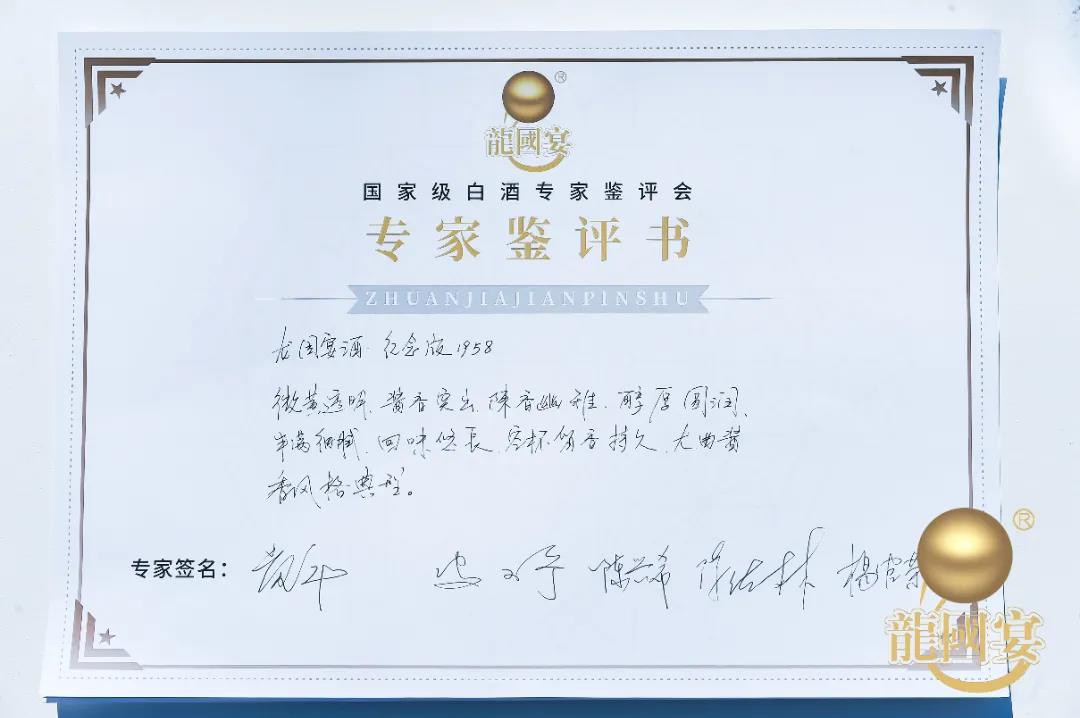 ®
龍國宴
国家级白酒专家鉴评会
专家鉴评书
ZHUANJIAJIANPINSHU
龙国宴酒·纪念版1958
微黄透明、酱香突出、陈香幽雅、醇厚圆润、
丰满细腻、回味悠长、空杯留香持久、大曲酱
香风格典型。
专家签名：
®
龍國宴